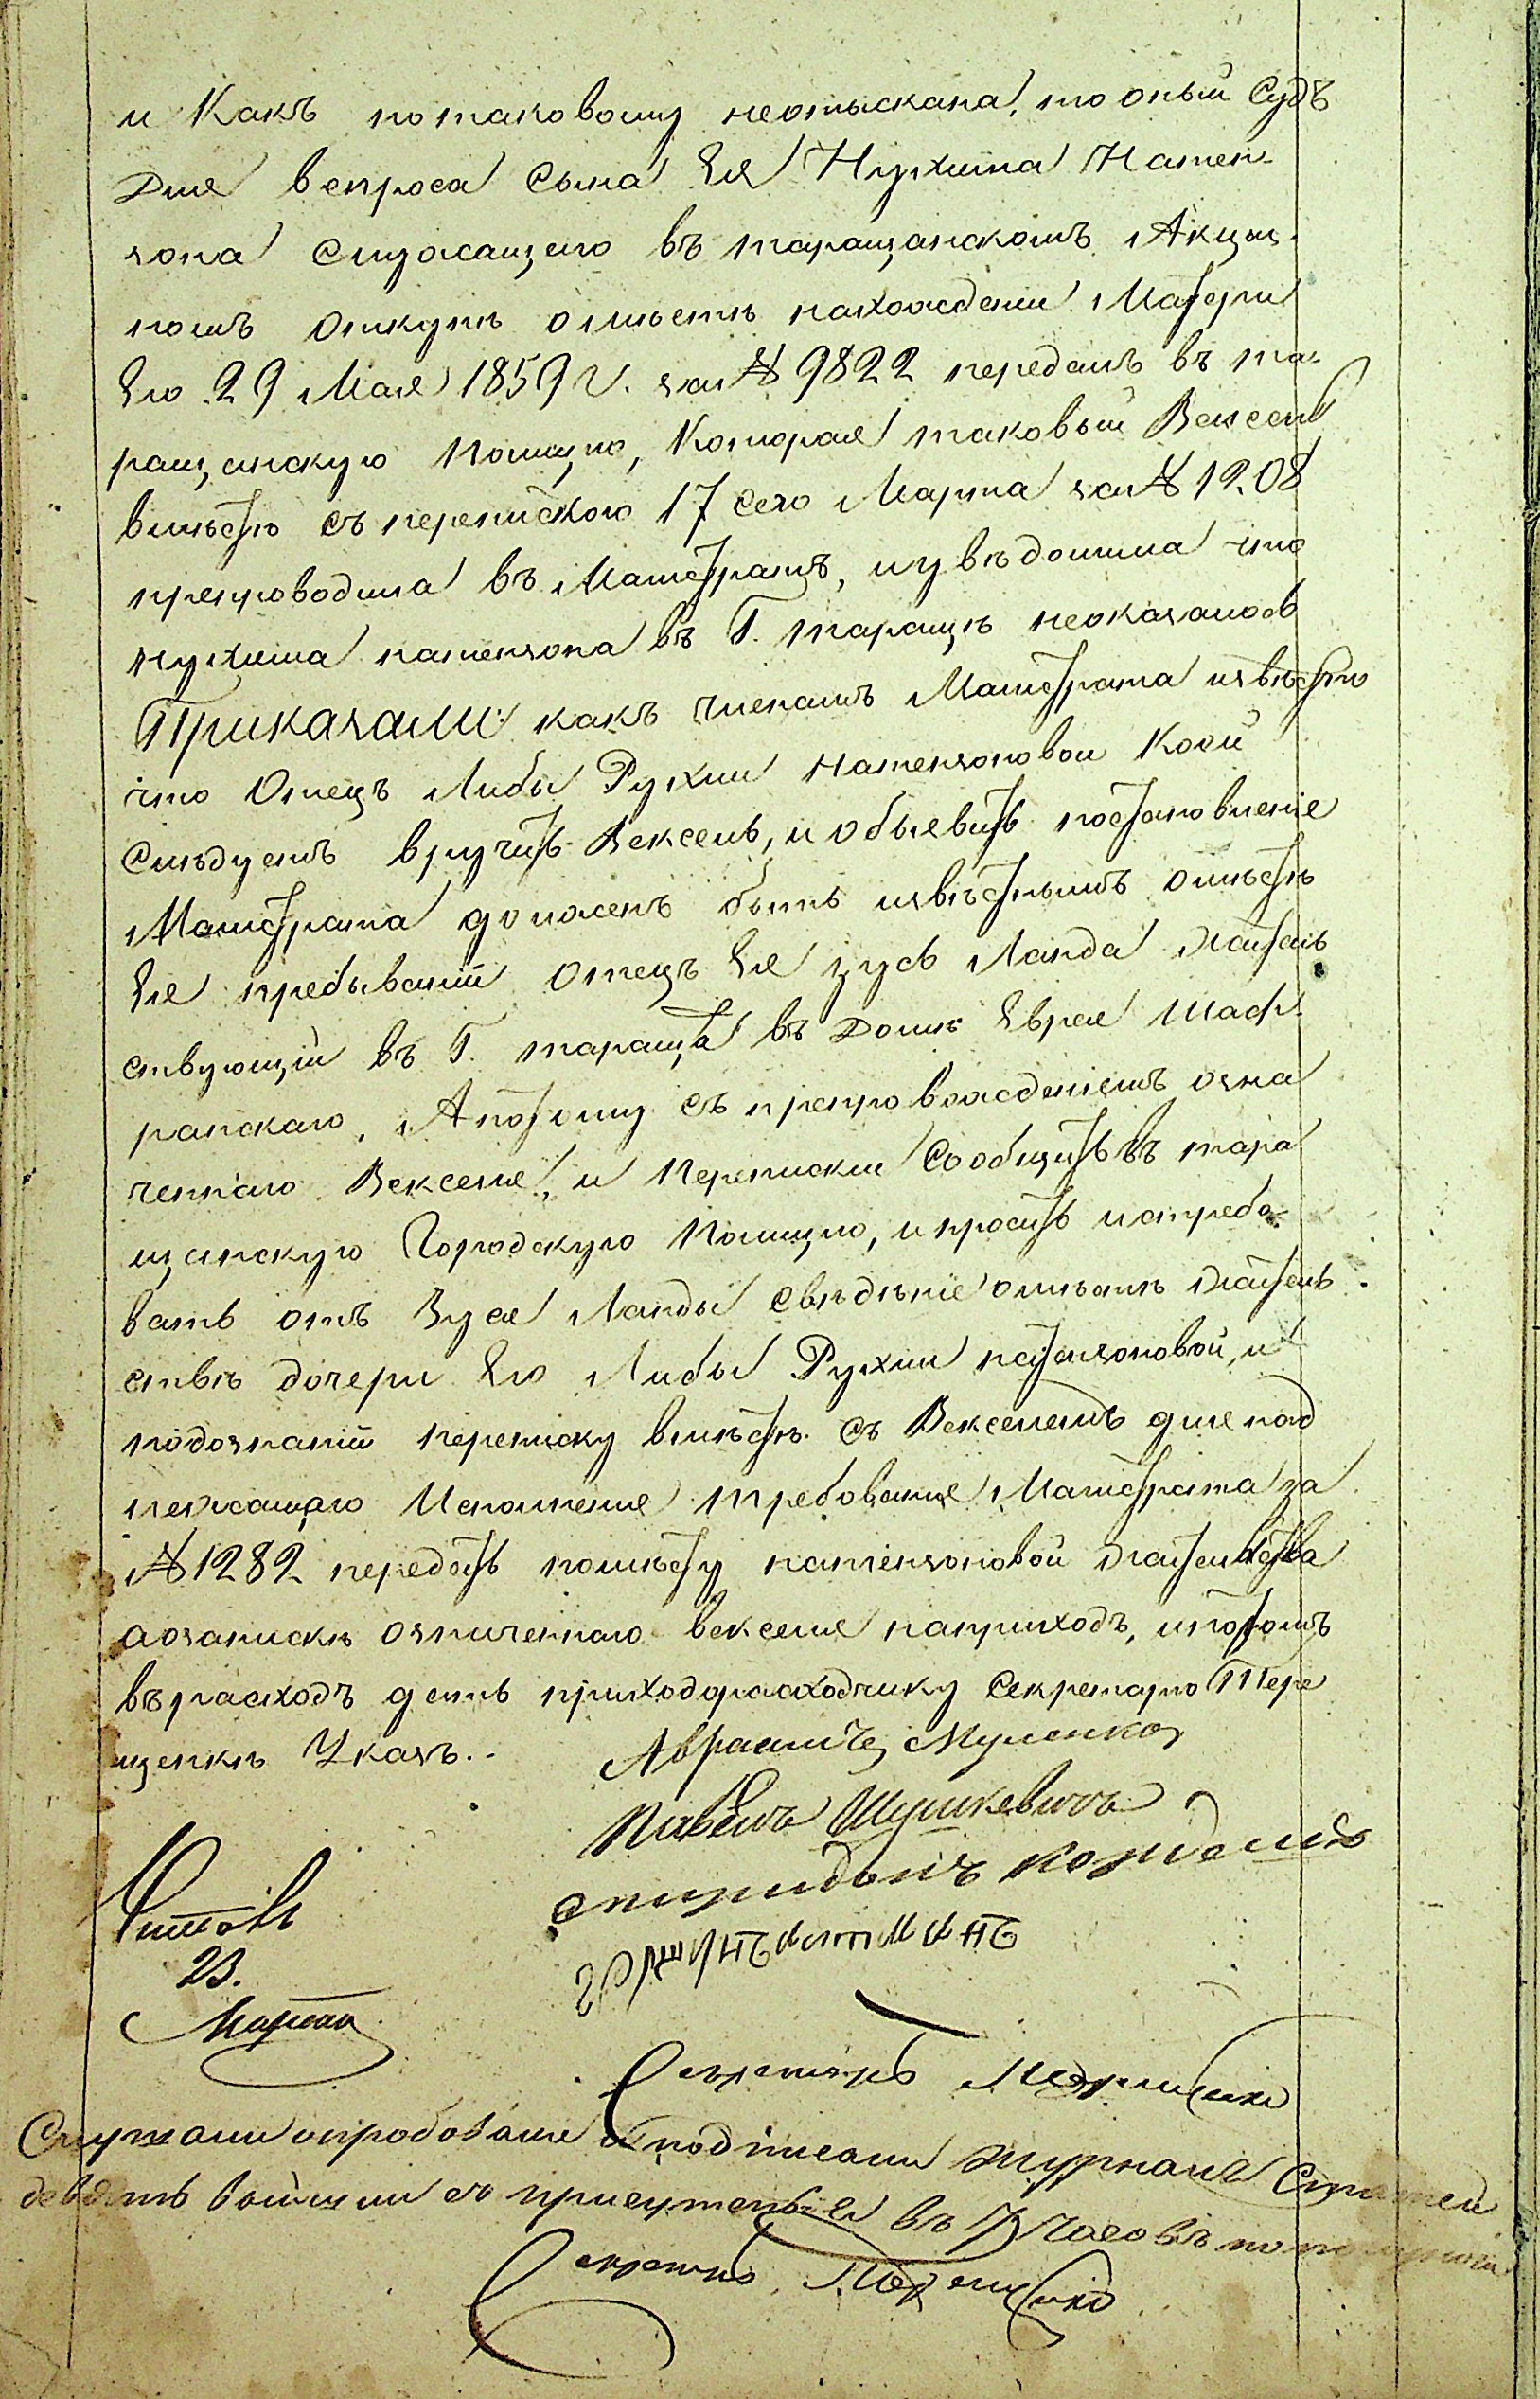 и Какъ потаковому неотыскана, то оный Судъ
Для вспроса Сына Ея Нухима Натен-
зона Служащего въ таращанскомъ Акциз-
номъ откупѣ омѣстѣ нахождении Матери
Его 29 Мая 1859 г. за № 9822 передалъ въ та-
ращанскую Полицію, Которая таковый Вексель
вмѣстѣ съ перепискою 17 сего Марта за № 1208
препроводила въ Магистратъ, и увѣдомила что
нухима натензона въ Г. таращѣ неоказалось
Приказали: какъ членамъ Магистрата извѣстно
что Отецъ Либы Рухли Натензоновой Коей
Слѣдуетъ вручить Вексель, и объявить постановленіе
Магистрата долженъ быть извѣстнымъ омѣстѣ
Ея пребыванія Отецъ Ея Зусь Ланда жатель
ствующій въ Г. тараща въ Домѣ Еврея Шаф-
ранскаго, Апотому съ препровожденіемъ озна
ченнаго Векселя, и Переписки Сообщить въ тара
щанскую Городскую Полицію, и просить истребо-
вать отъ Зуся Ланды Свѣдѣніе омѣстѣ жатель-
ствѣ дочери Его Либы Рухли натензоновой, и
подознаніи переписку вмѣстѣ съ Векселемъ для над
лежащаго Исполнения требования Магистрата за
№ 1282 передать помѣсту натензоновой жательства
аозапискѣ означеннаго векселя наприходъ, ипотомъ
въ расходъ дать приходорасходчику Секретарю Тере
щенкѣ Указъ..
Авраамъ Муленко
Павелъ Шушкевичъ
спиридонъ кожемяко
Читалъ
23.
Марта
Секретарь Терещенко
Слушали опробовали и подписали журналъ Статей
девять вышли съ присутствія въ 7 часовъ пополуночи
Секретарь Терещенко